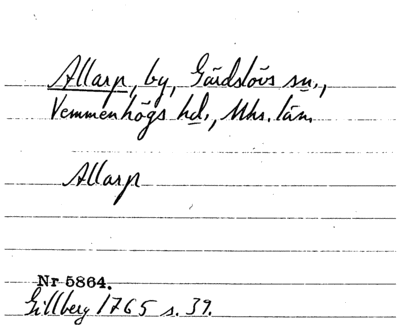 Allarp, by, Gärdslövs sn.,
Vemmenhögs hd., Mhs. län.
Allarp
Nr 5864.
Gillberg 1765 s. 39.